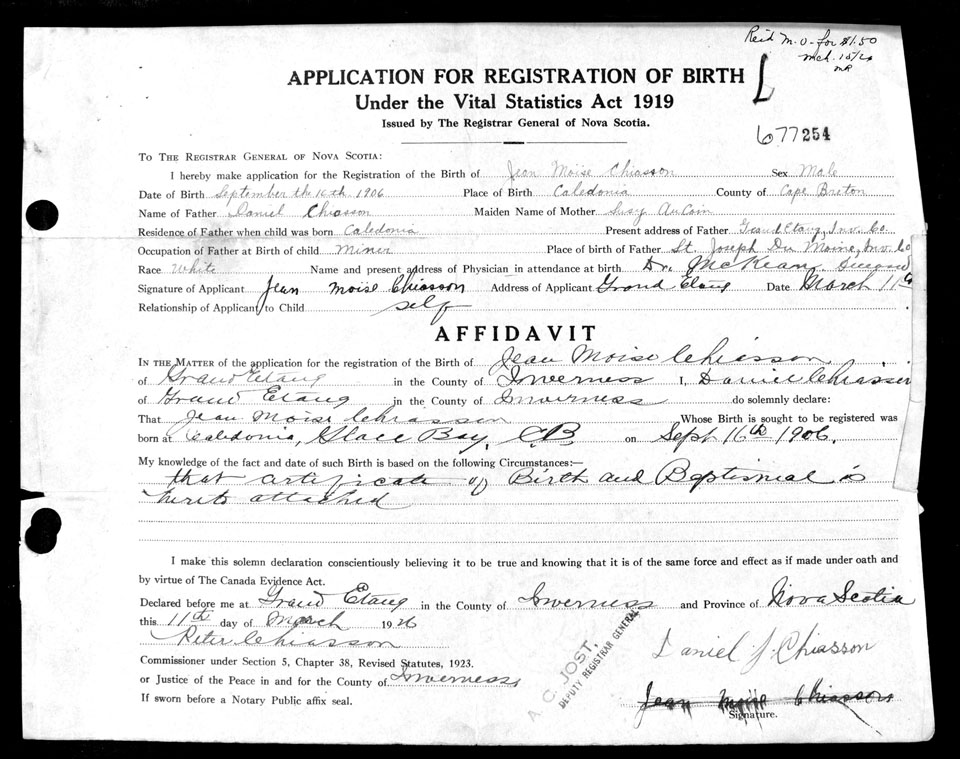 Rec'd M.O. for $1.50
Mch. 15/26
MR
APPLICATION FOR REGISTRATION OF BIRTH
L
Under the Vital Statistics Act 1919
Issued by The Registrar General of Nova Scotia.
677254
TO THE REGISTRAR GENERAL OF NOVA SCOTIA:
I hereby make application for the Registration of the Birth of Jean Moise Chiasson Sex Male
Date of Birth September the 16th 1906 Place of Birth Caledonia County of Cape Breton
Name of Father Daniel Chiasson Maiden Name of Mother Susy AuCoin
Residence of Father when child was born Caledonia Present address of Father Grand Etang, Inv. Co.
Occupation of Father at Birth of child Miner Place of birth of Father St. Joseph Du Moine, Inv. Co
Race White Name and present address of Physician in attendance at birth Dr. McKean, Deceased
Signature of Applicant Jean Moise Chiasson Address of Applicant Grand Etang Date March 11th
Relationship of Applicant to Child self
AFFIDAVIT
IN THE MATTER of the application for the registration of the Birth of Jean Moise Chiasson
of Grand Etang in the County of Inverness I, Daniel Chiasson
of Grand Etang in the County of Inverness do solemnly declare:
That Jean Moise Chiasson Whose Birth is sought to be registered was
born at Caledonia, Glace Bay, CB on Sept 16th 1906.
My knowledge of the fact and date of such Birth is based on the following Circumstances:—
that certificate of Birth and Baptismal is
hereto attached
I make this solemn declaration conscientiously believing it to be true and knowing that it is of the same force and effect as if made under oath and
by virtue of The Canada Evidence Act.
Declared before me at Grand Etang in the County of Inverness and Province of Nova Scotia
this 11th day of March 1926
Peter Chiasson
Daniel J. Chiasson
A. C. JOST,
DEPUTY REGISTRAR GENERAL
Commissioner under Section 5, Chapter 38, Revised Statutes, 1923.
or Justice of the Peace in and for the County of Inverness
Jean Moise Chiasson
If sworn before a Notary Public affix seal.
Signature.